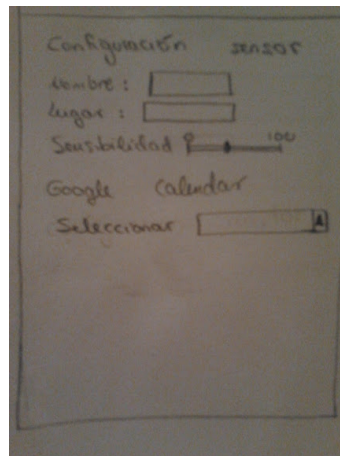 Configuración sensor
Nombre :
Lugar :
Sensibilidad 0 100
Google Calendar
Seleccionar